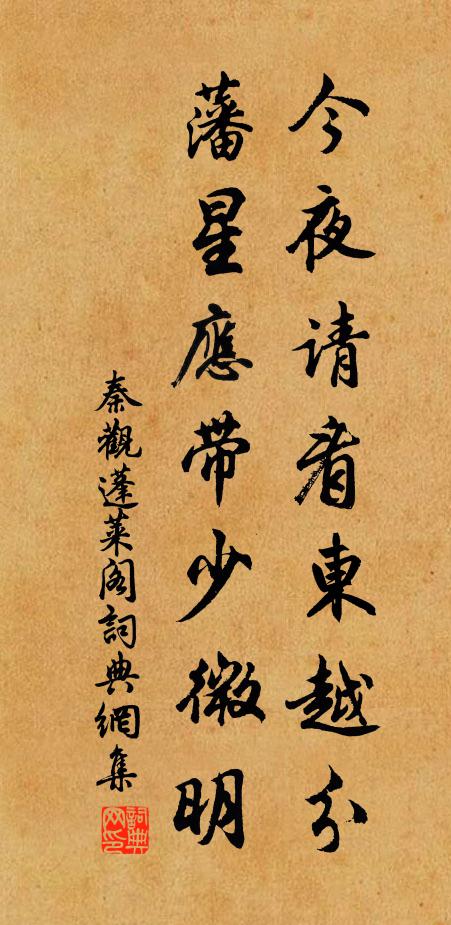 今夜請看東越分
藩星應帶少微明
秦觀蓬萊閣詞典網集
詞典网印